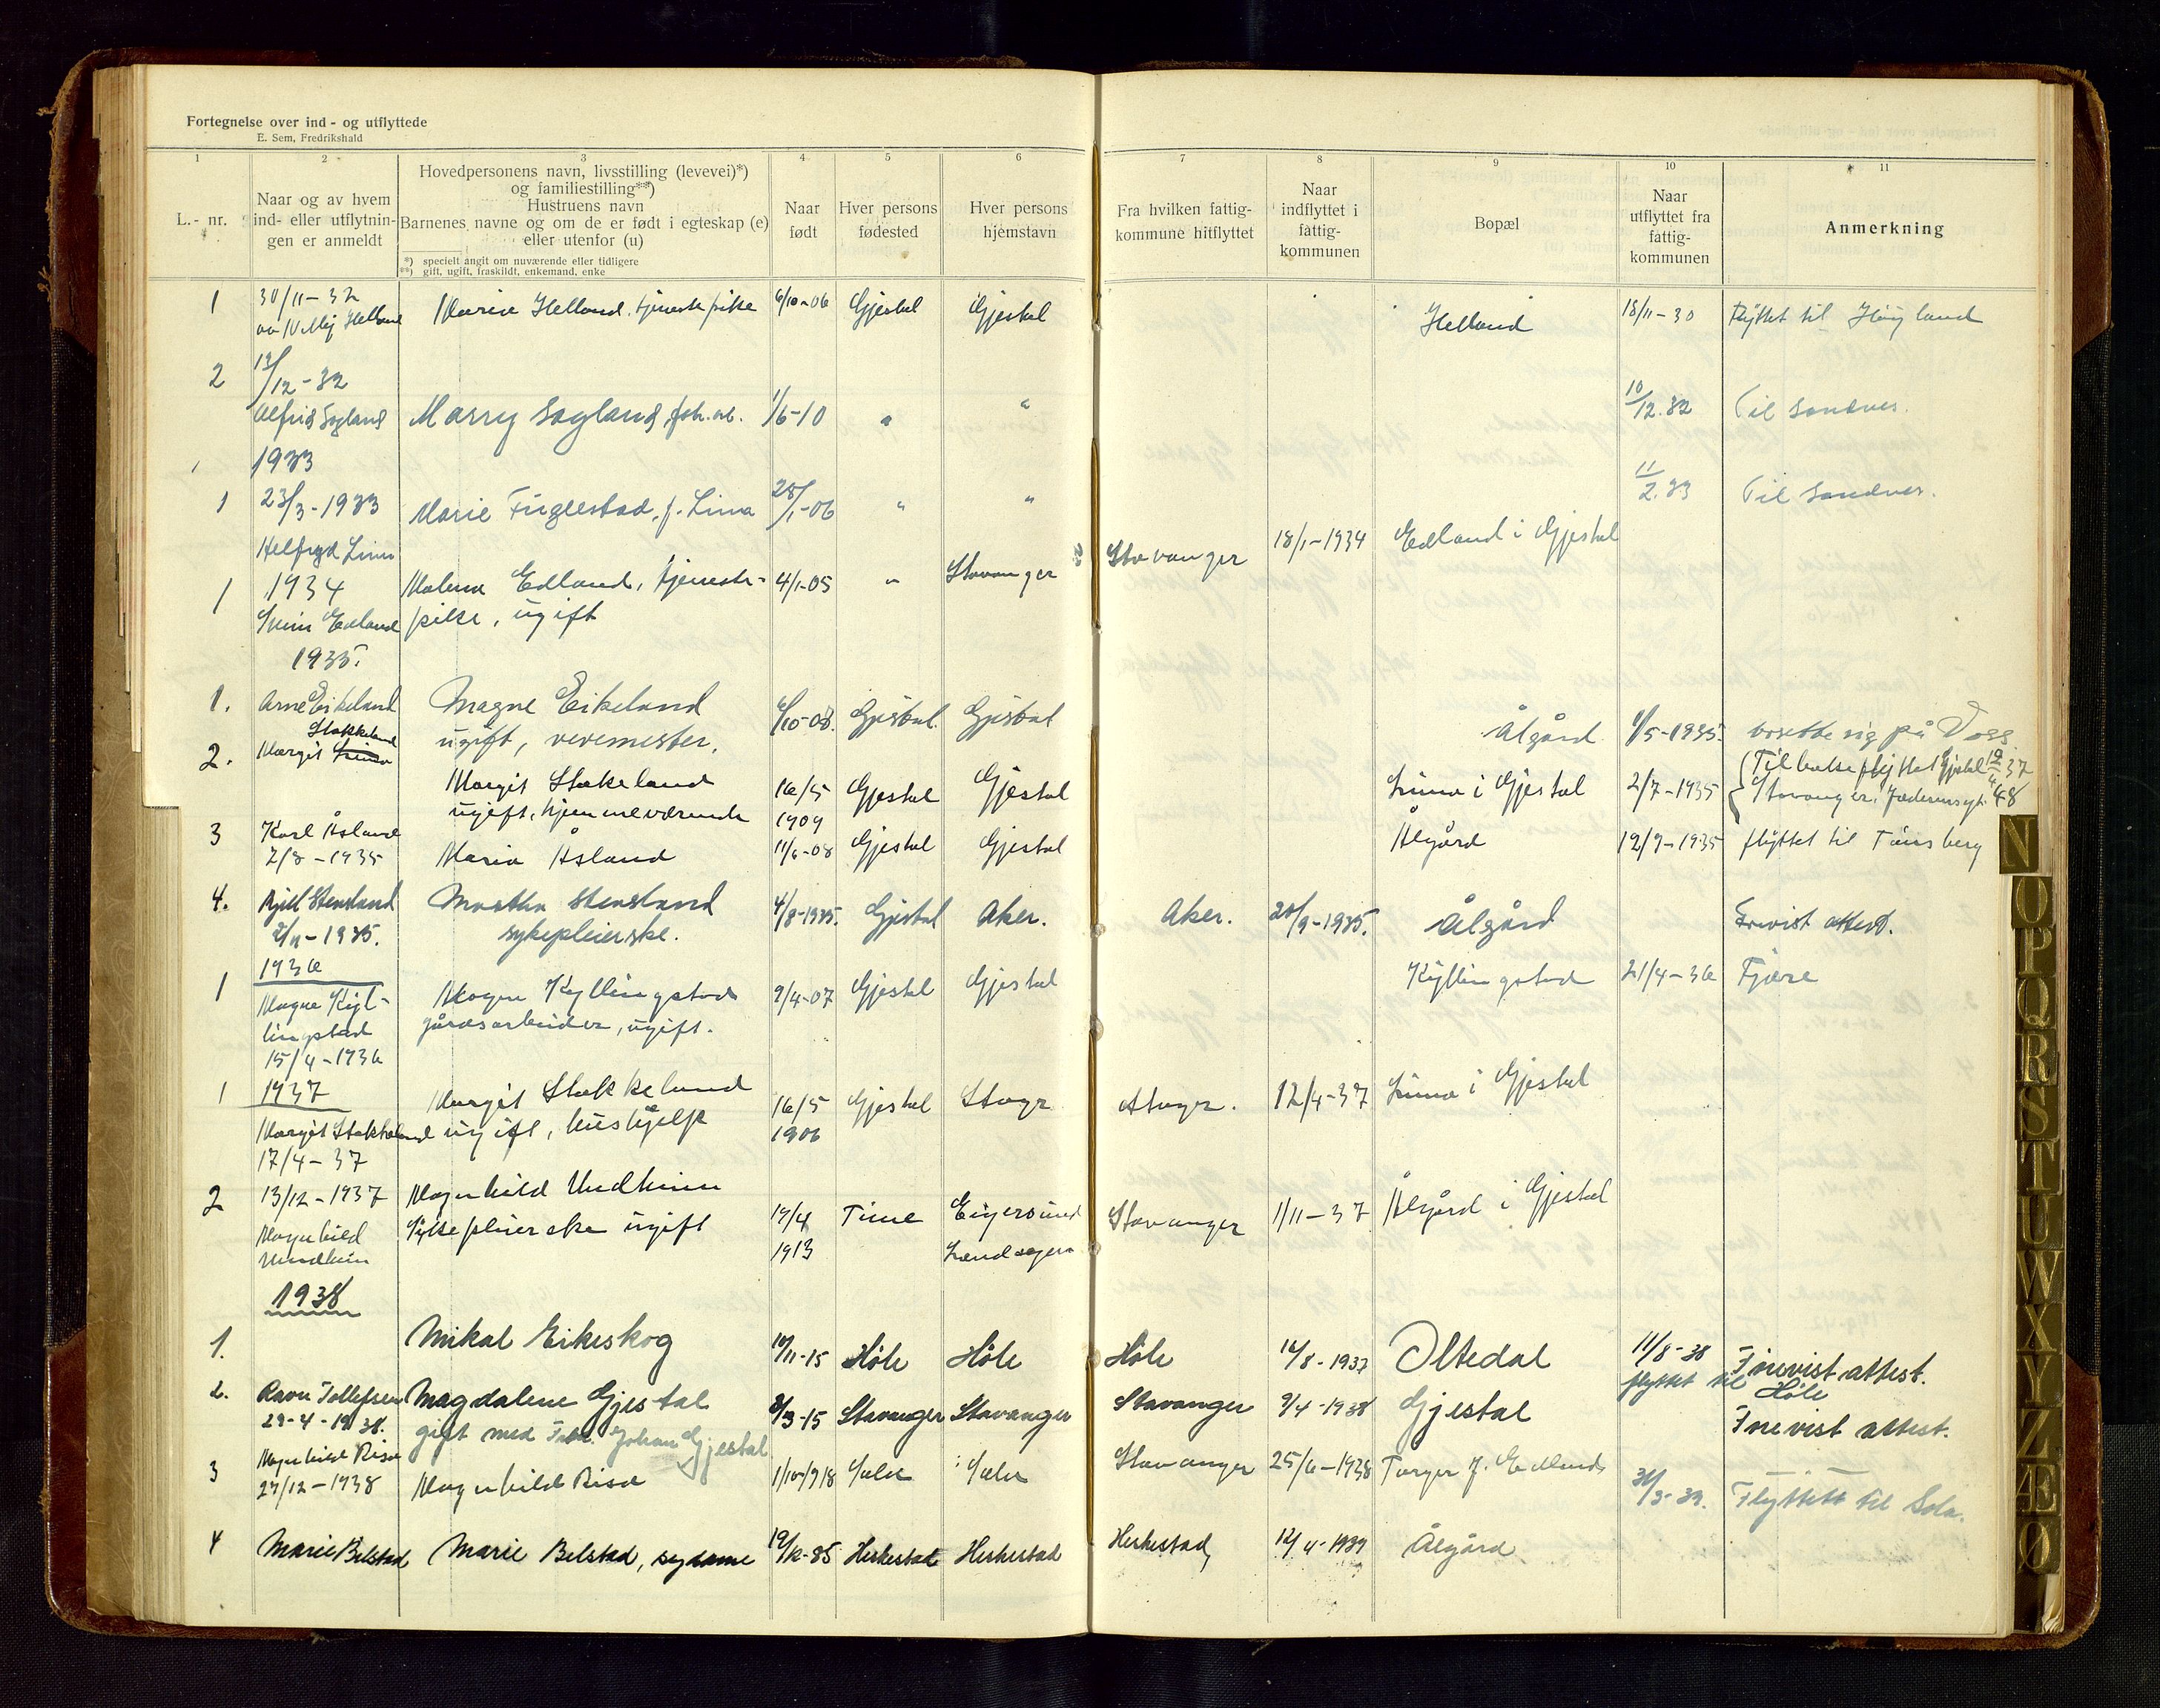 Fortegnelse over ind - og utflyttede
E. Sem, Fredrikshald
1 2 3 4 5 6 7 8 9 10 11
L.- nr.
Naar og av hvem
ind- eller utflytnin-
gen er anmeldt
Hovedpersonens navn, livsstilling (levevei)*)
og familiestilling**)
Hustruens navn
Barnenes navne og om de er født i egteskap (e)
eller utenfor (u)
*) specielt angit om nuværende eller tidligere
**) gift, ugift, fraskildt, enkemand, enke
Naar
født
Hver persons
fødested
Hver persons
hjemstavn
Fra hvilken fattig-
kommune hitflyttet
Naar
indflyttet i
fattig-
kommunen
Bopæl
Naar
utflyttet fra
fattig-
kommunen
Anmerkning
1 30/11-32 Marie Helland tjenestepike 6/10-06 Gjestal Gjestal Helland 18/11-30 Flyttet til Høyland
Helland
2 13/12-32
Alfrid Sagland Marry Sagland, fabr.arb. 1/6-10 " " 10/12.32 Til Sandnes.
1933
1 23/3-1933 Marie Fuglestad, f. Lima 28/1-06 " " 11/2.33 Til Sandnes.
Helfryd Lima
1 1934 Malena Edland, tjeneste- 4/1-05 " Stavanger Stavanger 18/1-1934 Edland i Gjestal
Edland pike, ugift
1935.
1. Arne Eikeland Magne Eikeland 6/10-08. Gjestal Gjestal Ålgård 1/5-1935. bosette sig på Voss
ugift, vevemester.
2. Margit Lima Stokkeland Margit Stokeland 16/5 1909 Gjestal Gjestal Lima i Gjestal 2/7-1935 Tilbakeflyttet Gjestal 12/4 37
ugift, hjemmeværende Stavanger.
3 Karl Åsland Maria Åsland 11/6-08 Gjestal Gjestal Ålgård 12/9-1935 flyttet til Tønsberg
7/8-1935
4. Kjell Stensland Martha Stensland 4/8-1935. Gjestal Aker. Aker. 20/9-1935. Ålgård Frevist attest.
2/11-1935. sykepleierske.
1936
1 Magne Kyl- Magne Kyllingstad 9/4-07 Gjestal Gjestal Kyllingstad 21/4-36 Fjære
lingstad gårdsarbeider, ugift.
15/4-1936
1 1937 Margit Stokkeland 16/5 Gjestal Stavgr Stavgr. 12/4-37 Lima i Gjestal
Margit Stokkeland ugift, hushjelp 1906
17/4-37
2 13/12-1937 Magnhild Undheim 19/4 Time Eigersund Stavanger 1/11-37 Ålgård i Gjestal
Magnhild Sykepleierske ugift 1913 Landsogn
Undheim
1938
1. Mikal Eikeskog 10/11-15 Høle Høle Høle 16/8-1937 Oltedal 11/8-38 Fnevist attest.
flyttet til Høle
2. Ravn Tollefsen Magdalene Gjestal 3/3-15 Stavanger Stavanger Stavanger 9/4-1938 Gjestal Fnevist attest.
29-4-1938. gift med Johan Gjestal
3 Magnhild Risa Magnhild Risa 1/10-1918 Stavanger 25/6-1938 Torger J. Edland 31/3-39. Flyttett til Sola.
27/12-1938
4 Marie Belstad Marie Belstad, sydame 12/12-85 Heskestad Heskestad Heskestad, 12/4-1939 Ålgård
N
O
P
Q
R
S
T
U
W
X
Y
Z
Æ
Ø